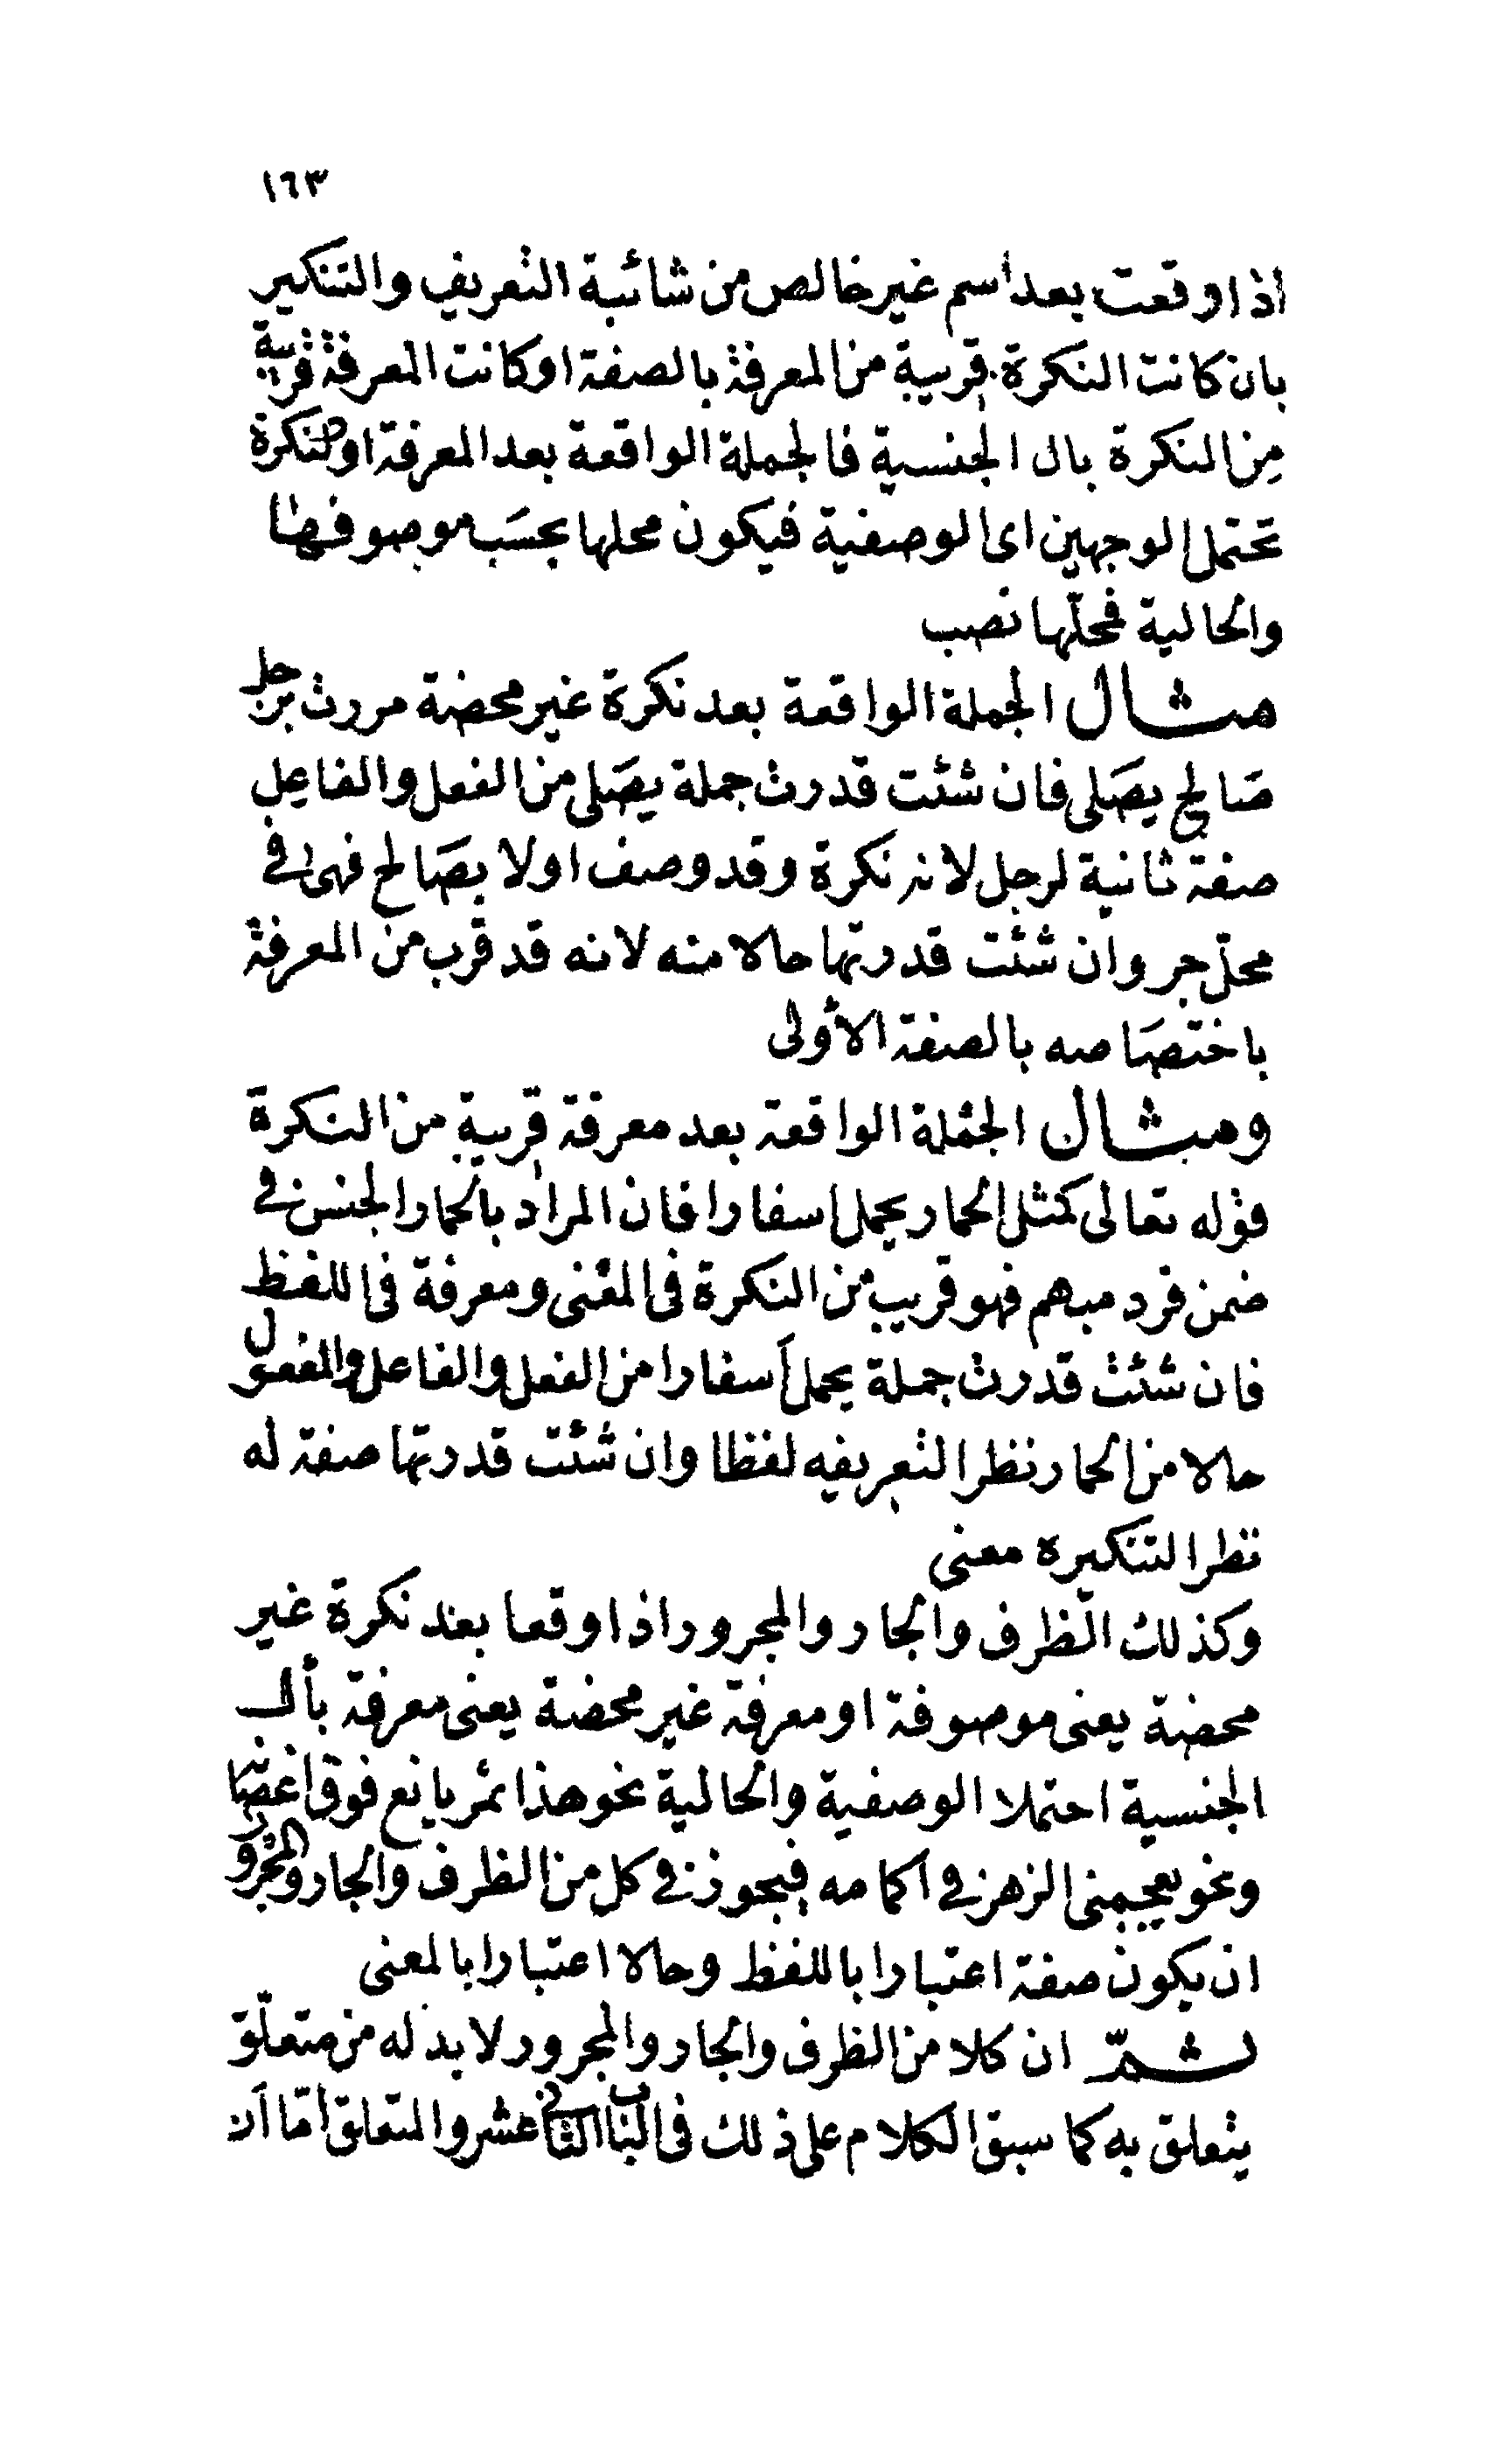 ١٦٣
اذا وقعت بعد اسم غير خالص من شائبة التعريف والتنكير
بان كانت النكرة قريبة من المعرفة بالصفة او كانت المعرفة قريبة
من النكرة بال الجنسية فالجملة الواقعة بعد المعرفة او النكرة
تحتمل الوجهين اى الوصفية فيكون محلها بحسب موصوفها
والحالية فمحلّها نصب
مثال الجملة الواقعة بعد نكرة غير محضة مررت برجل
صالح يصلى فان شئت قدرت جملة يصلى من الفعل والفاعل
صفة ثانية لرجل لانه نكرة وقد وصف اولا بصالح فهى فى
محلّ جر وان شئت قدرتها حالا منه لانه قد قرب من المعرفة
باختصاصه بالصفة الأولى
ومثال الجملة الواقعة بعد معرفة قريبة من النكرة
قوله تعالى كمثل الحمار يحمل اسفارا فان المراد بالحمار الجنس فى
ضمن فرد مبهم فهو قريب من النكرة فى المعنى ومعرفة فى اللفظ
فان شئت قدرت جملة يحمل أسفارا من الفعل والفاعل والمفعول
حالا من الحمار نظرا لتعريفه لفظا وان شئت قدرتها صفة له
نظرا لتنكيره معنى
وكذلك الظرف والجار والمجرور اذا وقعا بعد نكرة غير
محضة يعنى موصوفة او معرفة غير محضة يعنى معرفة بأل
الجنسية احتملا الوصفية والحالية نحو هذا ثمر يانع فوق اغصانه
ونحو يعجبنى الزهر فى اكمامه فيجوز فى كل من الظرف والجار والمجرور
ان يكون صفة اعتبارا باللفظ وحالا اعتبارا بالمعنى
ثمّ ان كلا من الظرف والجار والمجرور لا بد له من متعلّق
يتعلق به كما سبق الكلام على ذلك فى الباب الثانى عشر والمتعلق امّا أن